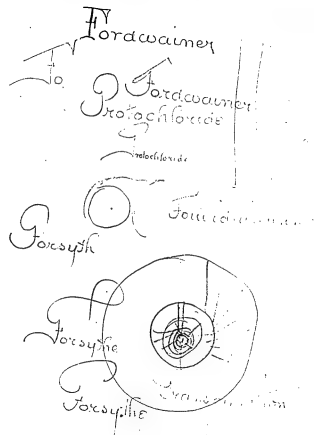 Fordwainer
To
Fordwainer
Protochloride
Protochloride
Forsyth
Forsythe
Forsythe